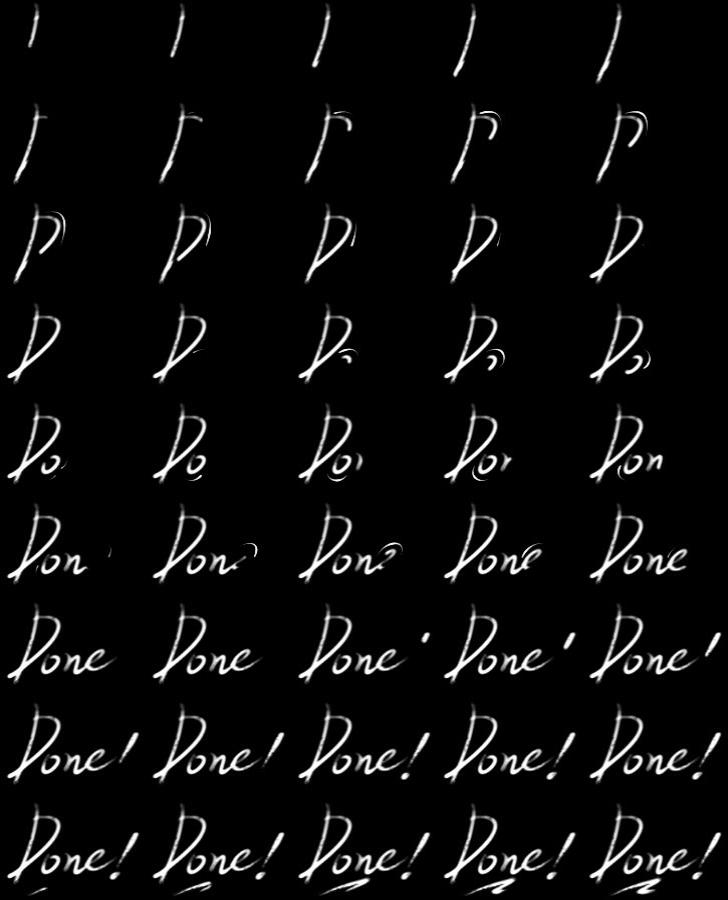 D
D D D D D
D D D D Do
Do Do Dor Dor Don
Don Don Done Done Done
Done Done Done Done Done!
Done! Done! Done! Done! Done!
Done! Done! Done! Done! Done!